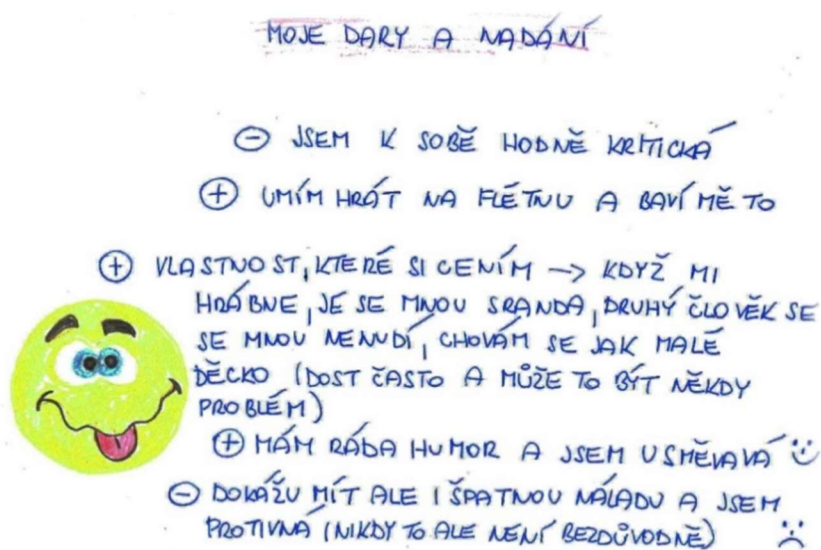 MOJE DARY A NADÁNÍ
⊖ JSEM K SOBĚ HODNĚ KRITICKÁ
⊕ UMÍM HRÁT NA FLÉTNU A BAVÍ MĚ TO
⊕ VLASTNOST, KTERÉ SI CENÍM -> KDYŽ MI
HRÁBNE, JE SE MNOU SRANDA, DRUHÝ ČLOVĚK SE
SE MNOU NENUDÍ, CHOVÁM SE JAK MALÉ
DĚCKO (DOST ČASTO A MŮŽE TO BÝT NĚKDY
PROBLÉM)
⊕ MÁM RÁDA HUMOR A JSEM USMĚVAVÁ :)
⊖ DOKÁŽU MÍT ALE I ŠPATNOU NÁLADU A JSEM
PROTIVNÁ (NIKDY TO ALE NENÍ BEZDŮVODNĚ) :(